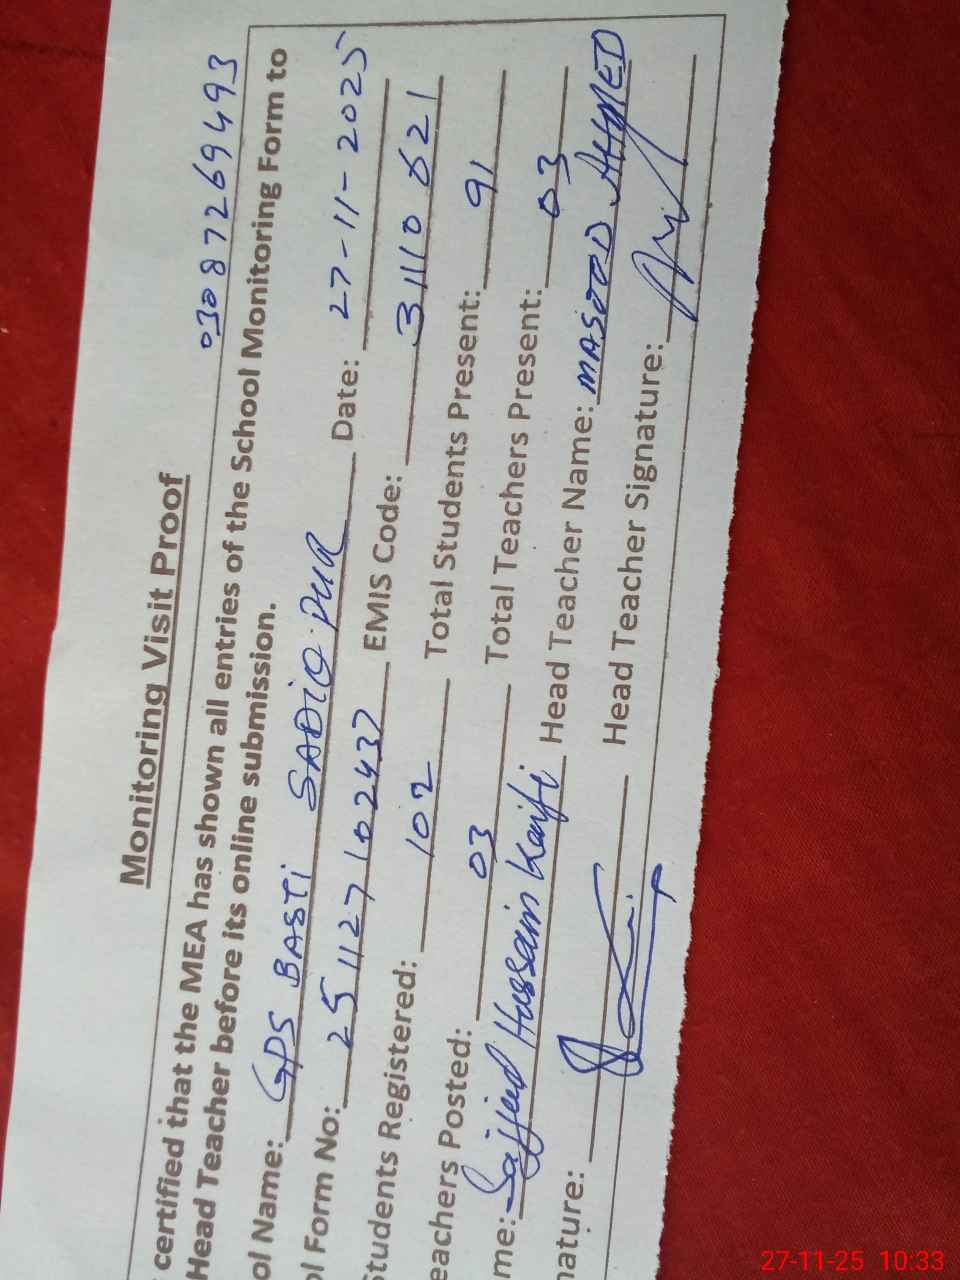 03087269493
Monitoring Visit Proof
certified that the MEA has shown all entries of the School Monitoring Form to
Head Teacher before its online submission.
ol Name: GPS BASTI SADIQ PUR Date: 27-11-2025
ol Form No: 25112710 2437 EMIS Code: 31110621
Students Registered: 102 Total Students Present: 91
eachers Posted: 03 Total Teachers Present: 03
me: Sajjad Hussain Kaifi Head Teacher Name: MASOOD AHMED
nature: Head Teacher Signature:
27-11-25 10:33